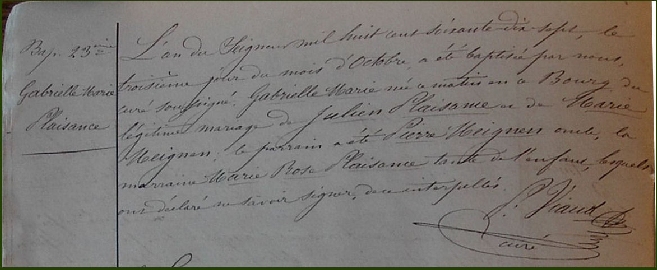 Bap. 23ème
Gabrielle Marie
Plaisance
L'an du Seigneur mil huit cent soixante-dix sept, le
troisième jour du mois d'Octobre, a été baptisée par nous,
curé soussigné, Gabrielle Marie né ce matin en ce Bourg du
légitime mariage de Julien Plaisance et de Marie
Heignen; le parrain a été Pierre Heignen oncle, la
marraine Marie Rose Plaisance tante de l'enfant, lesquels
ont déclaré ne savoir signer, de ce interpellés.
J. Viaud
curé